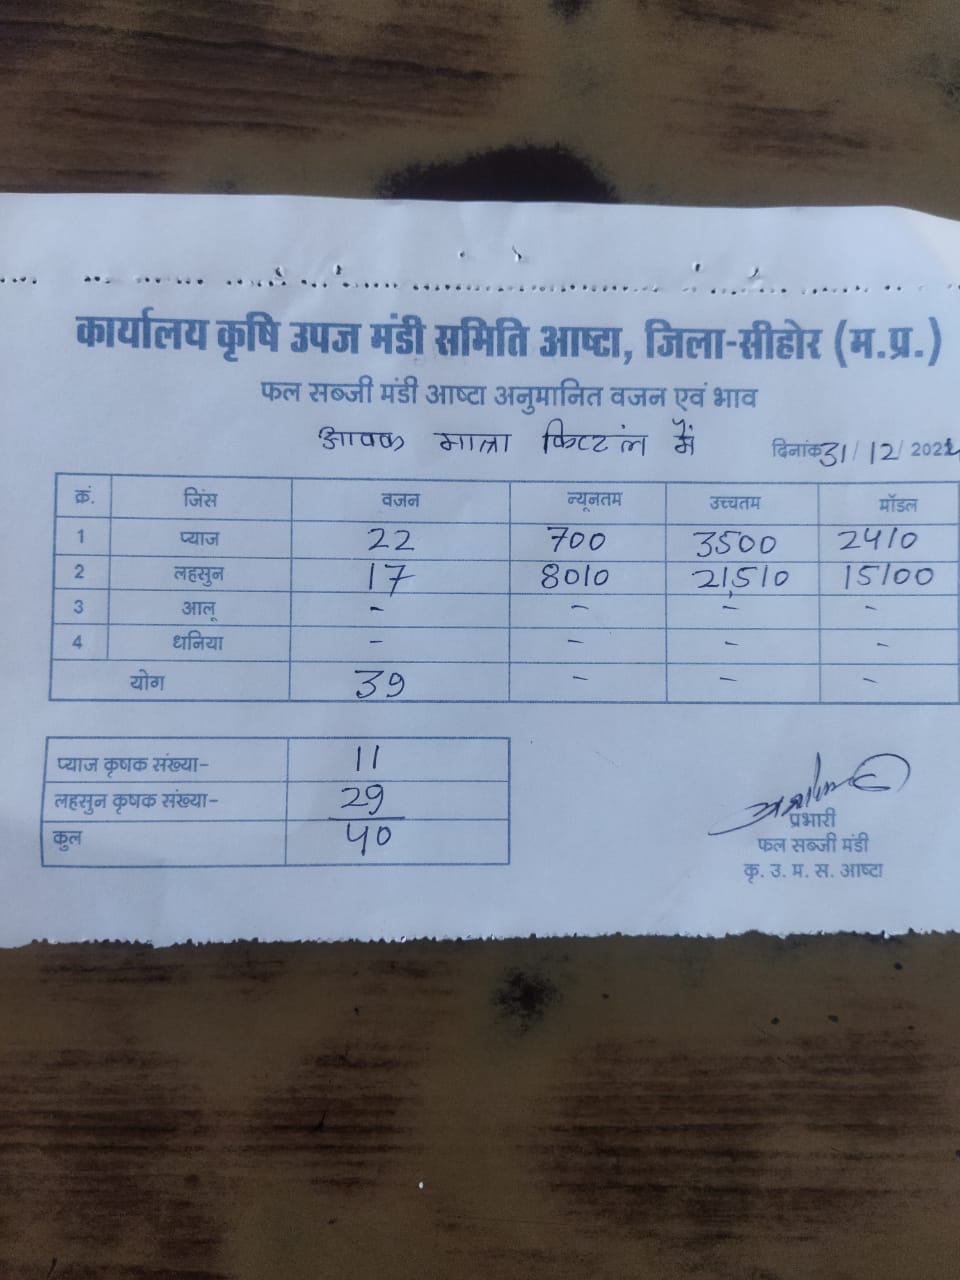 कार्यालय कृषि उपज मंडी समिति आष्टा, जिला-सीहोर (म.प्र.)
फल सब्जी मंडी आष्टा अनुमानित वजन एवं भाव
आवक मात्रा किंटल में दिनांक 31/12/2024
क्रं. जिंस वजन न्यूनतम उच्चतम मॉडल
1 प्याज 22 700 3500 2410
2 लहसुन 17 8010 21,510 15100
3 आलू - - - -
4 धनिया - - - -
योग 39 - - -
प्याज कृषक संख्या- 11
लहसुन कृषक संख्या- 29
कुल 40
प्रभारी
फल सब्जी मंडी
कृ. उ. म. स. आष्टा